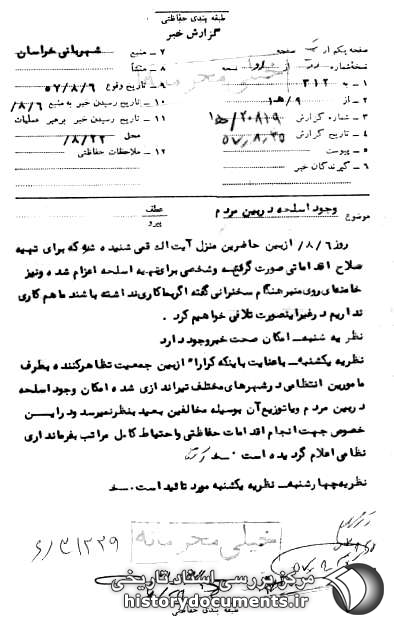 طبقه بندی حفاظتی
گزارش خبر
صفحه یکم از صفحه
نسخهٔ شماره از نسخه
۱ - به ۳۱۲
۲ - از ۹ هـ ۱
۳ - شماره گزارش ۲۰۸۱۹ / ۹ هـ ۱
۴ - تاریخ گزارش ۵۷٫۸٫۲۵
۵ - پیوست
۶ - گیرندگان خبر
۷ - منبع شهربانی خراسان
۸ - منشأ
۹ - تاریخ وقوع ۵۷/۸/۶
۱۰ - تاریخ رسیدن خبر به منبع ۸/۶/
۱۱ - تاریخ رسیدن خبر برهبر عملیات
محل ۸/۲۲/
۱۲ - ملاحظات حفاظتی
خیلی محرمانه
موضوع وجود اسلحه در بین مردم
عطف
پیرو
روز ۸/۶/ از بین حاضرین منزل آیت اله قمی شنیده شد که برای تهیه
سلاح اقداماتی صورت گرفته و شخصی برای تهیه اسلحه اعزام شده و نیز
خامنه‌ای روی منبر هنگام سخنرانی گفته اگر بما کاری نداشته باشند ما هم کاری
نداریم در غیر اینصورت تلافی خواهیم کرد .
نظریه شنبه ـ امکان صحت خبر وجود دارد
نظریه یکشنبه ـ با عنایت باینکه کرارا" از بین جمعیت تظاهر کننده بطرف
مامورین انتظامی در شهرهای مختلف تیراندازی شده امکان وجود اسلحه
در بین مردم و یا توزیع آن بوسیله مخالفین بعید بنظر نمیرسد و در این
خصوص جهت انجام اقدامات حفاظتی و احتیاط کامل مراتب بفرمانداری
نظامی اعلام گردیده است ۰ سد
نظریه چهارشنبه ـ نظریه یکشنبه مورد تائید است ۰ سد
خیلی محرمانه
مرکز بررسی اسناد تاریخی
historydocuments.ir
طبقه بندی حفاظتی